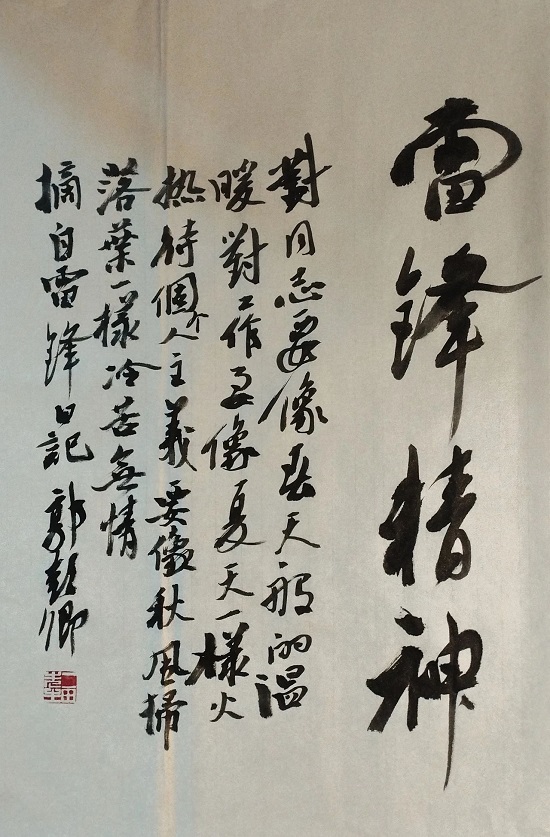 雷鋒精神
對同志要像春天般的温
暖對工作要像夏天一樣火
热待個人主義要像秋風掃
落葉一樣冷苦無情
摘自雷鋒日記 郭彭卿